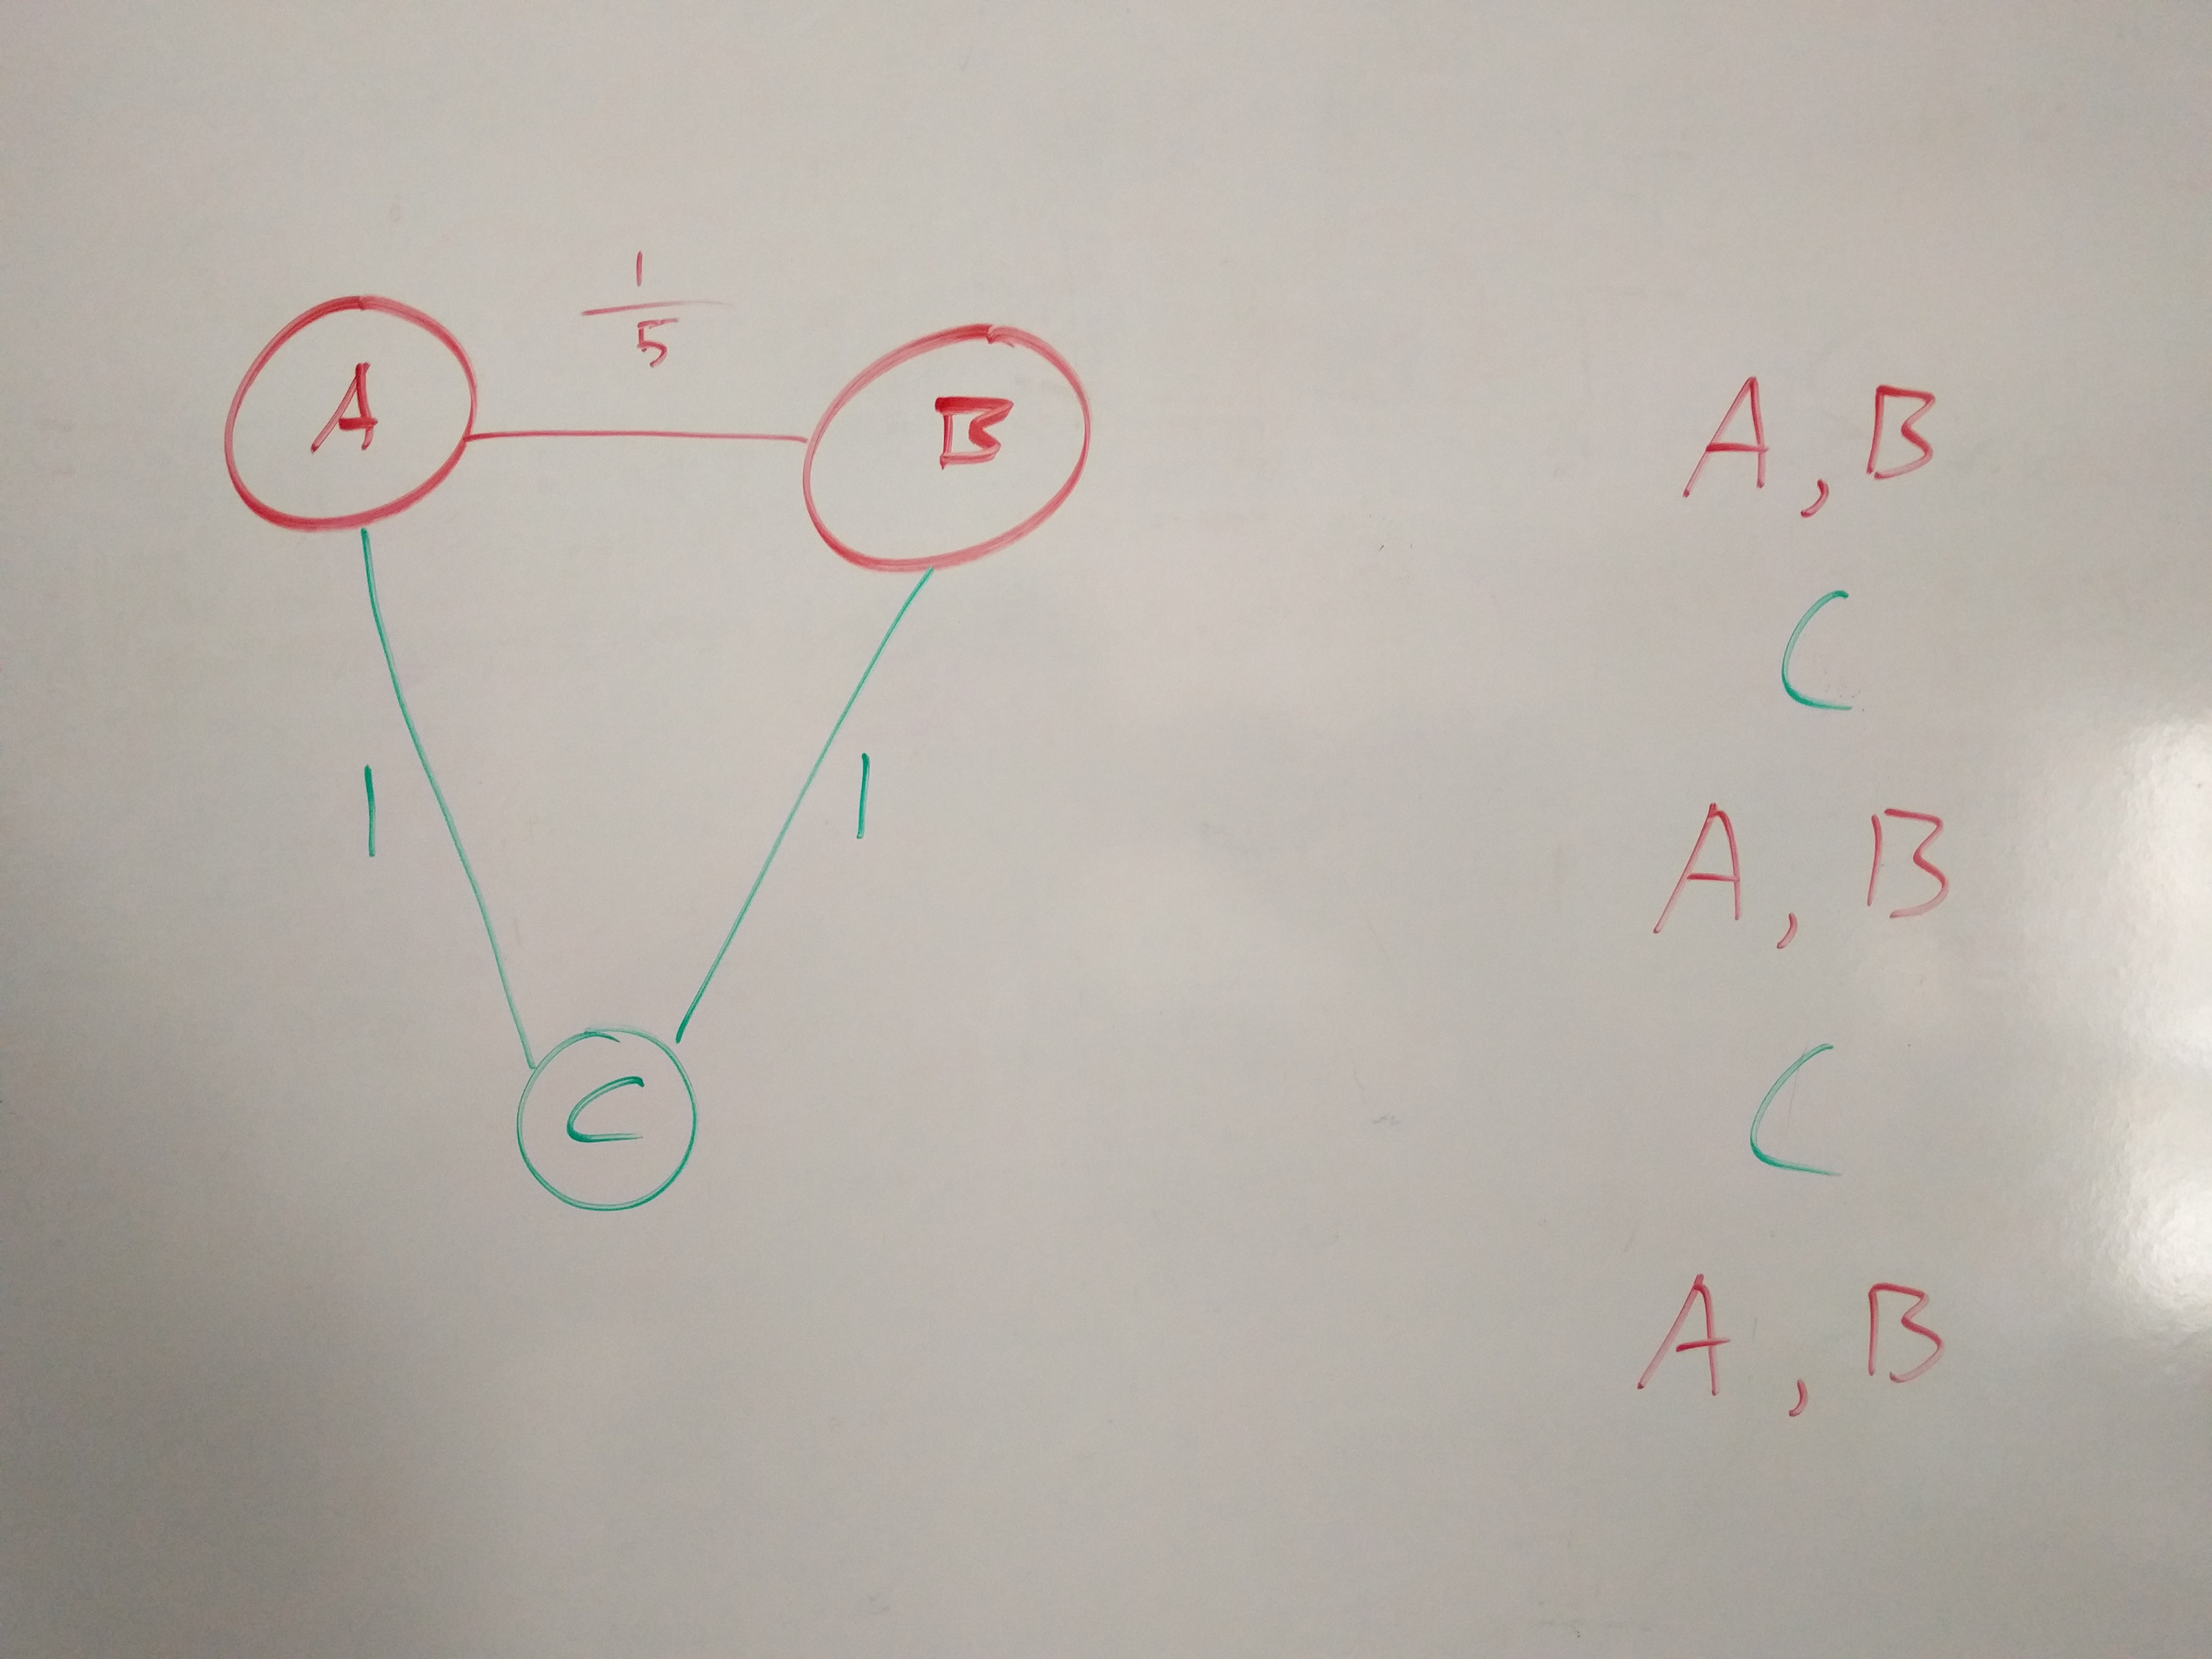 1
5
A
B
1
1
C
A, B
C
A, B
C
A, B